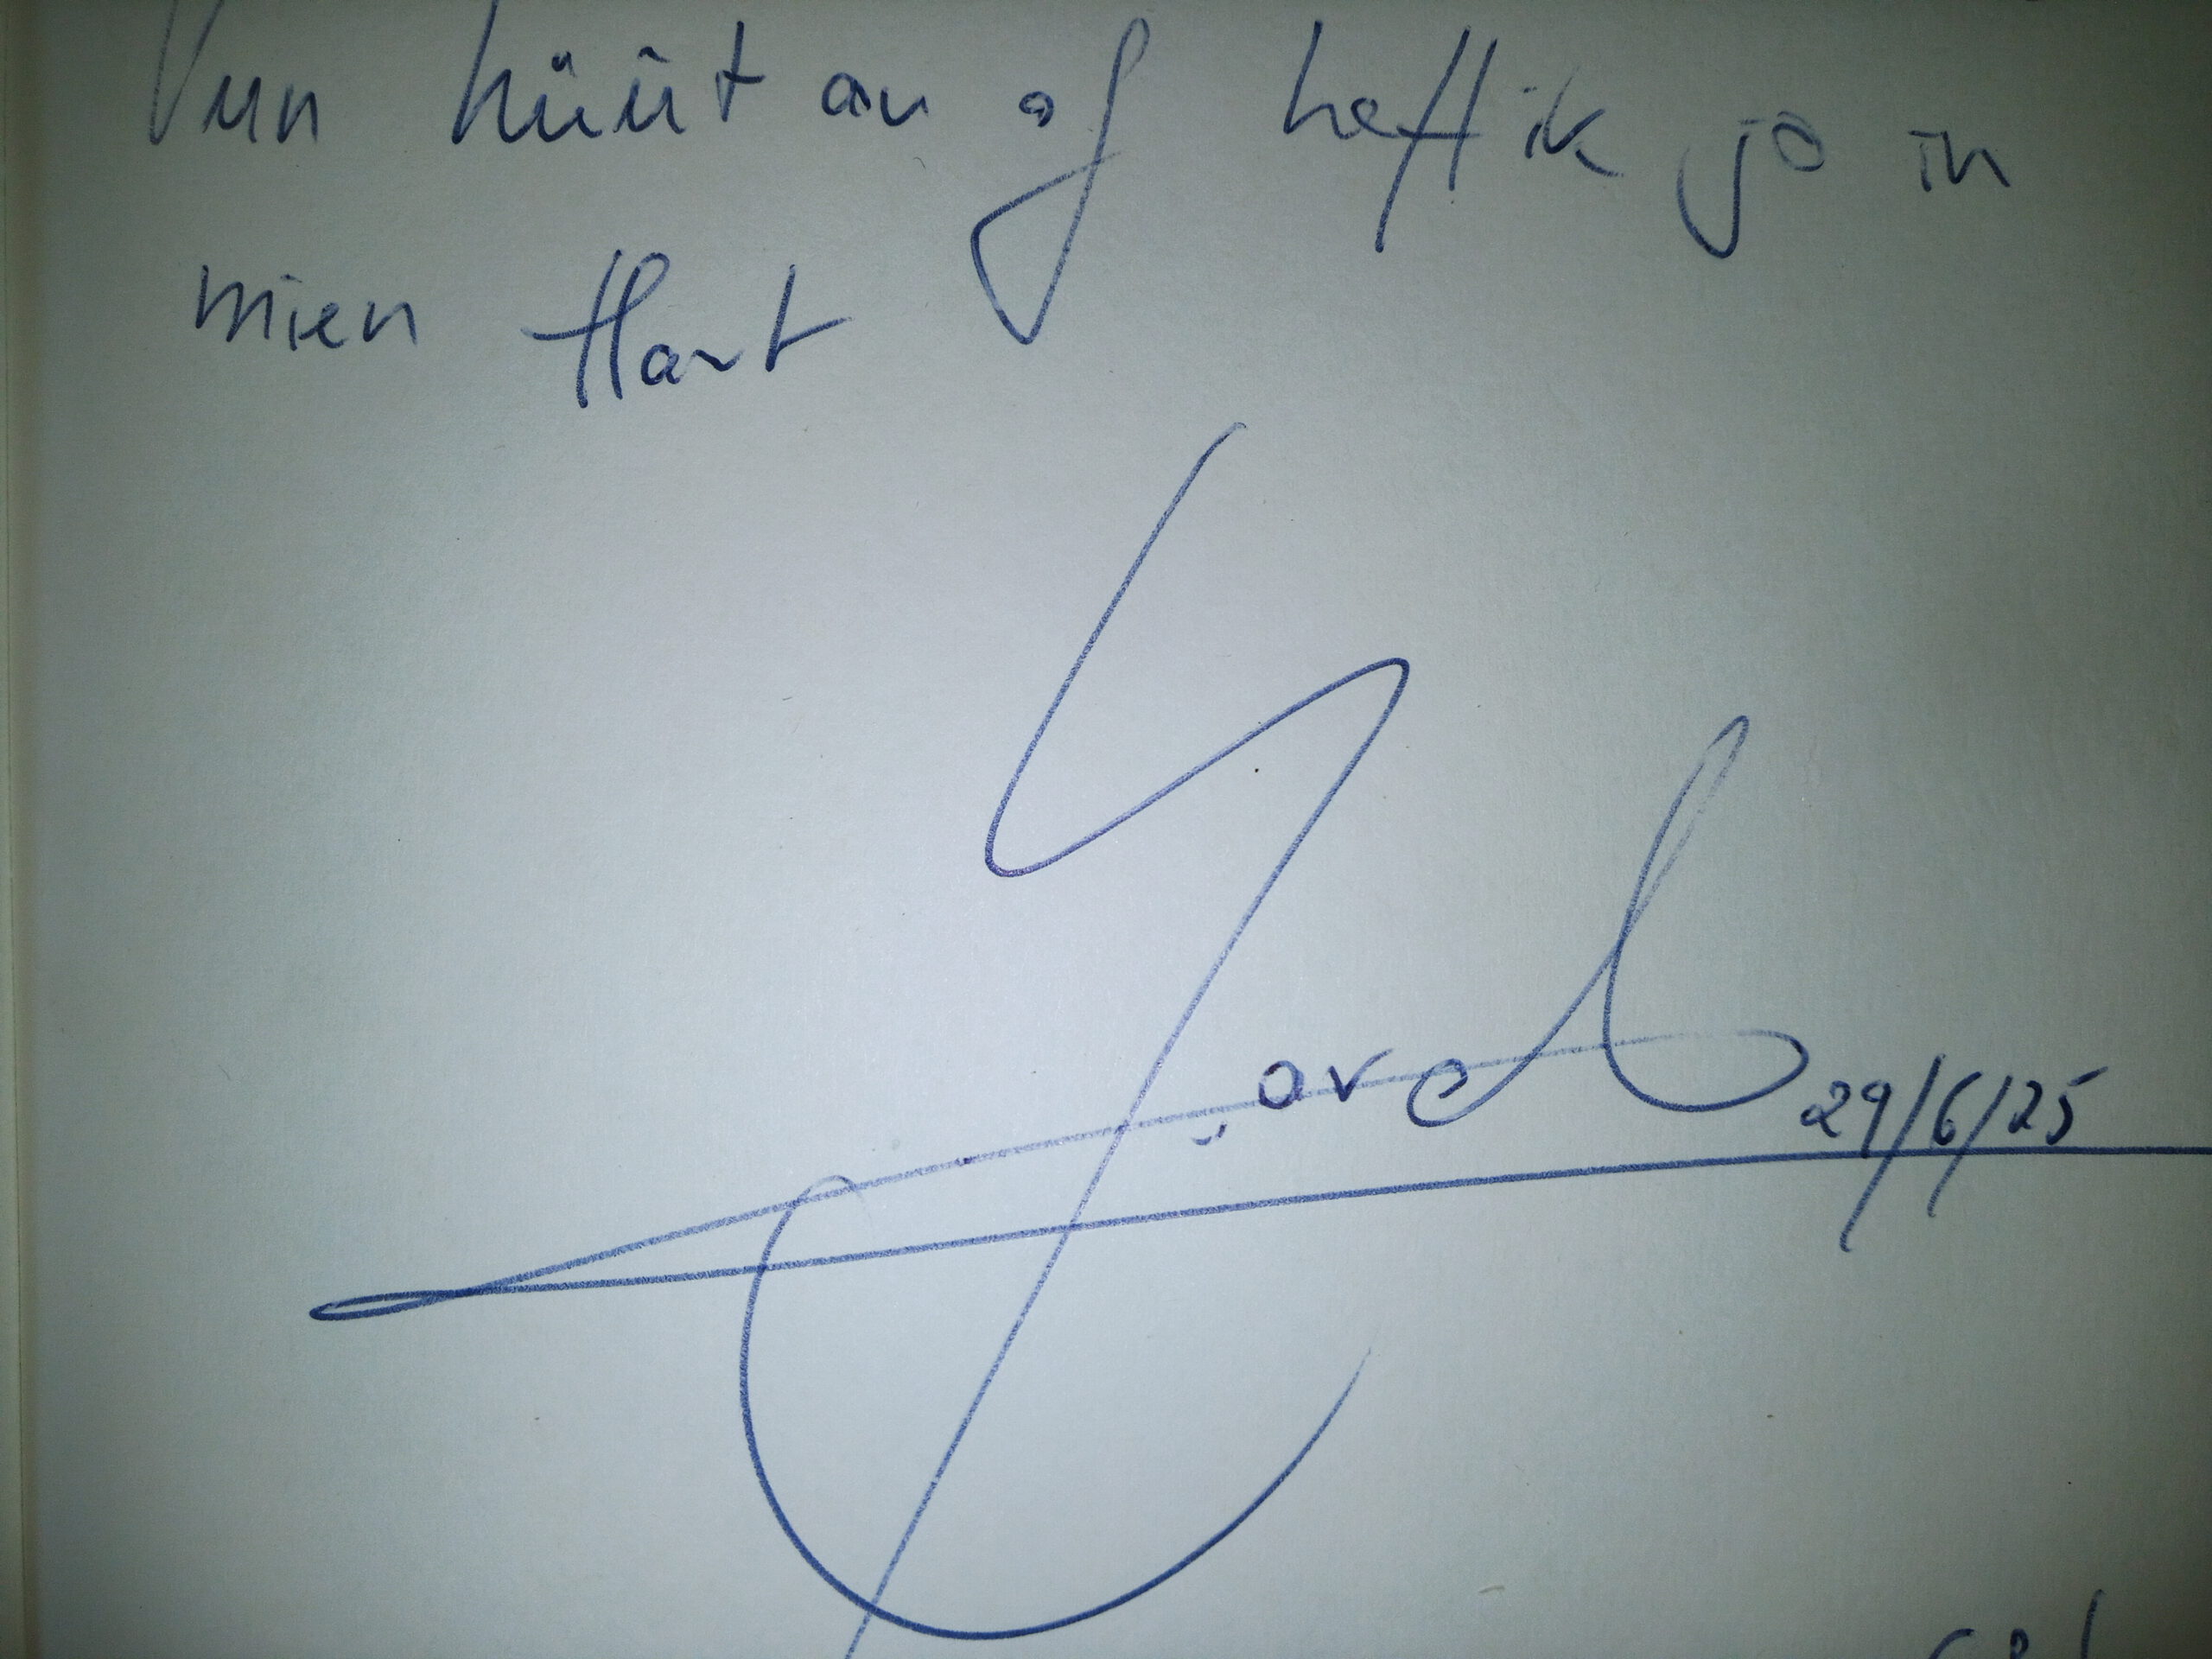 Vun hüüt an af heff ik jo in
mien Hart
29/6/25